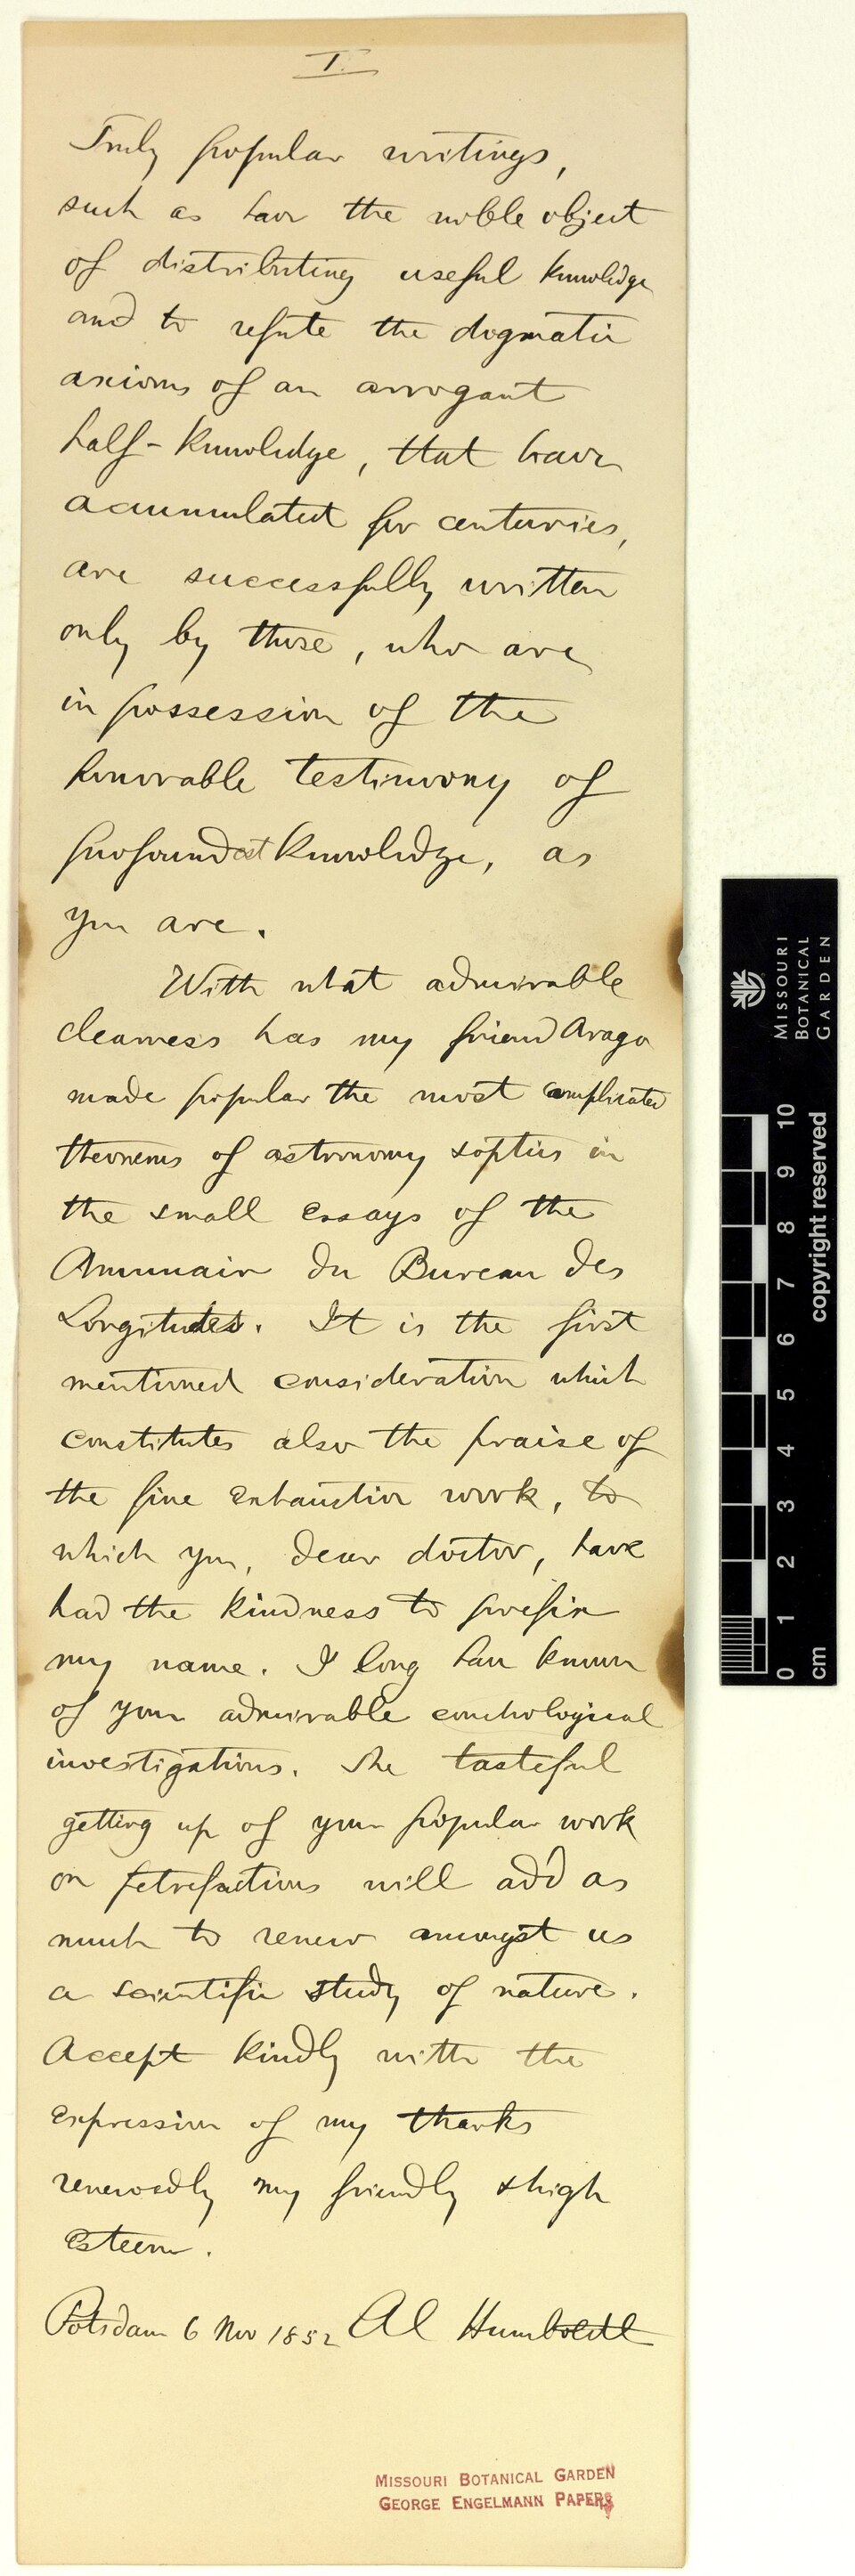 I.
Truly popular writings,
such as have the noble object
of distributing useful knowledge
and to refute the dogmatic
axioms of an arrogant
half-knowledge, that have
accumulated for centuries,
are successfully written
only by those, who are
in possession of the
honorable testimony of
profoundest knowledge, as
you are.
With what admirable
clearness has my friend Arago
made popular the most complicated
theorems of astronomy & optics in
the small essays of the
Annuair du Bureau des
Longitudes. It is the first
mentioned consideration which
constitutes also the praise of
the fine exhaustive work, to
which you, dear doctor, have
had the kindness to prefix
my name. I long have known
of your admirable conchological
investigations. The tasteful
getting up of your popular work
on petrefactions will add as
much to renew amongst us
a scientific study of nature.
Accept kindly with the
expression of my thanks
renewedly my friendly & high
esteem.
Potsdam 6 Nov 1852 Al Humboldt
MISSOURI BOTANICAL GARDEN
GEORGE ENGELMANN PAPERS
MISSOURI
BOTANICAL
GARDEN
0 1 2 3 4 5 6 7 8 9 10
cm copyright reserved